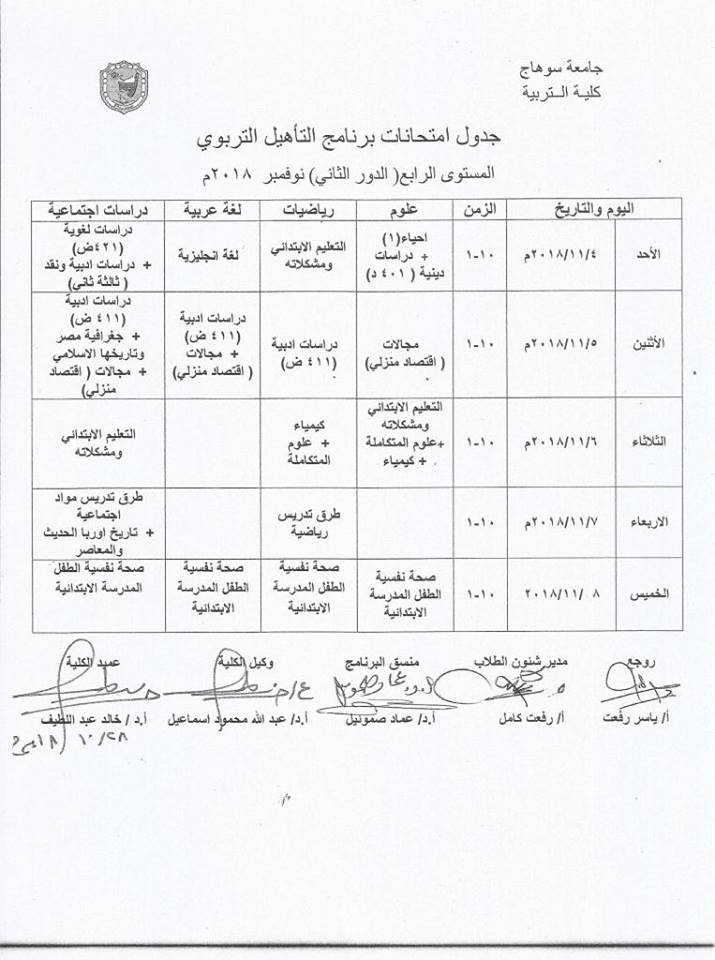 جامعة سوهاج
كلية التربية
جدول امتحانات برنامج التأهيل التربوي
المستوى الرابع( الدور الثاني) نوفمبر ٢٠١٨م
اليوم والتاريخ الزمن علوم رياضيات لغة عربية دراسات اجتماعية
الأحد ٢٠١٨/١١/٤م ١٠-١
احياء(١)
+ دراسات
دينية ( ٤٠١ د)
التعليم الابتدائي
ومشكلاته
لغة انجليزية
دراسات لغوية
(٤٢١ض)
+ دراسات ادبية ونقد
( ثالثة ثاني)
الأثنين ٢٠١٨/١١/٥م ١٠-١
مجالات
( اقتصاد منزلي)
دراسات ادبية
(٤١١ ض)
دراسات ادبية
(٤١١ ض)
+ مجالات
( اقتصاد منزلي)
دراسات ادبية
(٤١١ ض)
+ جغرافية مصر
وتاريخها الاسلامي
+ مجالات ( اقتصاد
منزلي)
الثلاثاء ٢٠١٨/١١/٦م ١٠-١
التعليم الابتدائي
ومشكلاته
+علوم المتكاملة
+ كيمياء
كيمياء
+ علوم
المتكاملة
التعليم الابتدائي
ومشكلاته
الاربعاء ٢٠١٨/١١/٧م ١٠-١
طرق تدريس
رياضية
طرق تدريس مواد
اجتماعية
+ تاريخ اوربا الحديث
والمعاصر
الخميس ٢٠١٨/١١/ ٨ ١٠-١
صحة نفسية
الطفل المدرسة
الابتدائية
صحة نفسية
الطفل المدرسة
الابتدائية
صحة نفسية
الطفل المدرسة
الابتدائية
صحة نفسية الطفل
المدرسة الابتدائية
روجع مدير شئون الطلاب منسق البرنامج وكيل الكلية عميد الكلية
أ/ ياسر رفعت أ/ رفعت كامل أ.د/ عماد صموئيل أ.د/ عبد الله محمود اسماعيل أ.د / خالد عبد اللطيف